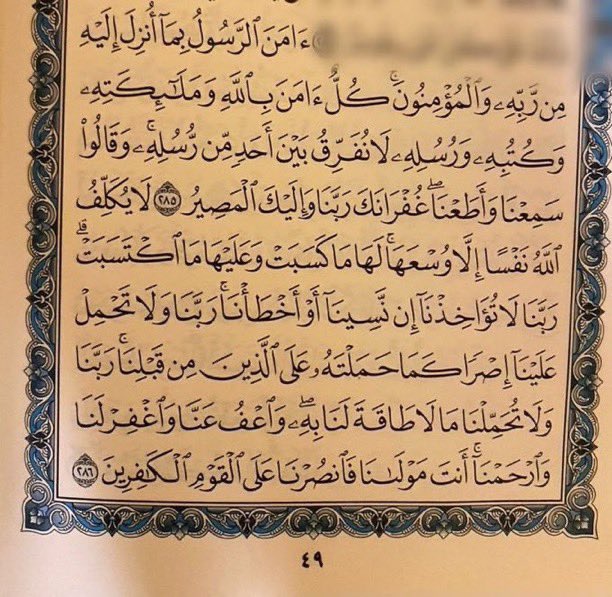 ءَامَنَ ٱلرَّسُولُ بِمَآ أُنزِلَ إِلَيْهِ
مِن رَّبِّهِۦ وَٱلْمُؤْمِنُونَۚ كُلٌّ ءَامَنَ بِٱللَّهِ وَمَلَـٰٓئِكَتِهِۦ
وَكُتُبِهِۦ وَرُسُلِهِۦ لَا نُفَرِّقُ بَيْنَ أَحَدٍ مِّن رُّسُلِهِۦۚ وَقَالُوا۟
سَمِعْنَا وَأَطَعْنَاۖ غُفْرَانَكَ رَبَّنَا وَإِلَيْكَ ٱلْمَصِيرُ ٢٨٥ لَا يُكَلِّفُ
ٱللَّهُ نَفْسًا إِلَّا وُسْعَهَاۚ لَهَا مَا كَسَبَتْ وَعَلَيْهَا مَا ٱكْتَسَبَتْۗ
رَبَّنَا لَا تُؤَاخِذْنَآ إِن نَّسِينَآ أَوْ أَخْطَأْنَاۚ رَبَّنَا وَلَا تَحْمِلْ
عَلَيْنَآ إِصْرًا كَمَا حَمَلْتَهُۥ عَلَى ٱلَّذِينَ مِن قَبْلِنَاۚ رَبَّنَا
وَلَا تُحَمِّلْنَا مَا لَا طَاقَةَ لَنَا بِهِۦۖ وَٱعْفُ عَنَّا وَٱغْفِرْ لَنَا
وَٱرْحَمْنَآۚ أَنتَ مَوْلَىٰنَا فَٱنصُرْنَا عَلَى ٱلْقَوْمِ ٱلْكَـٰفِرِينَ ٢٨٦
٤٩